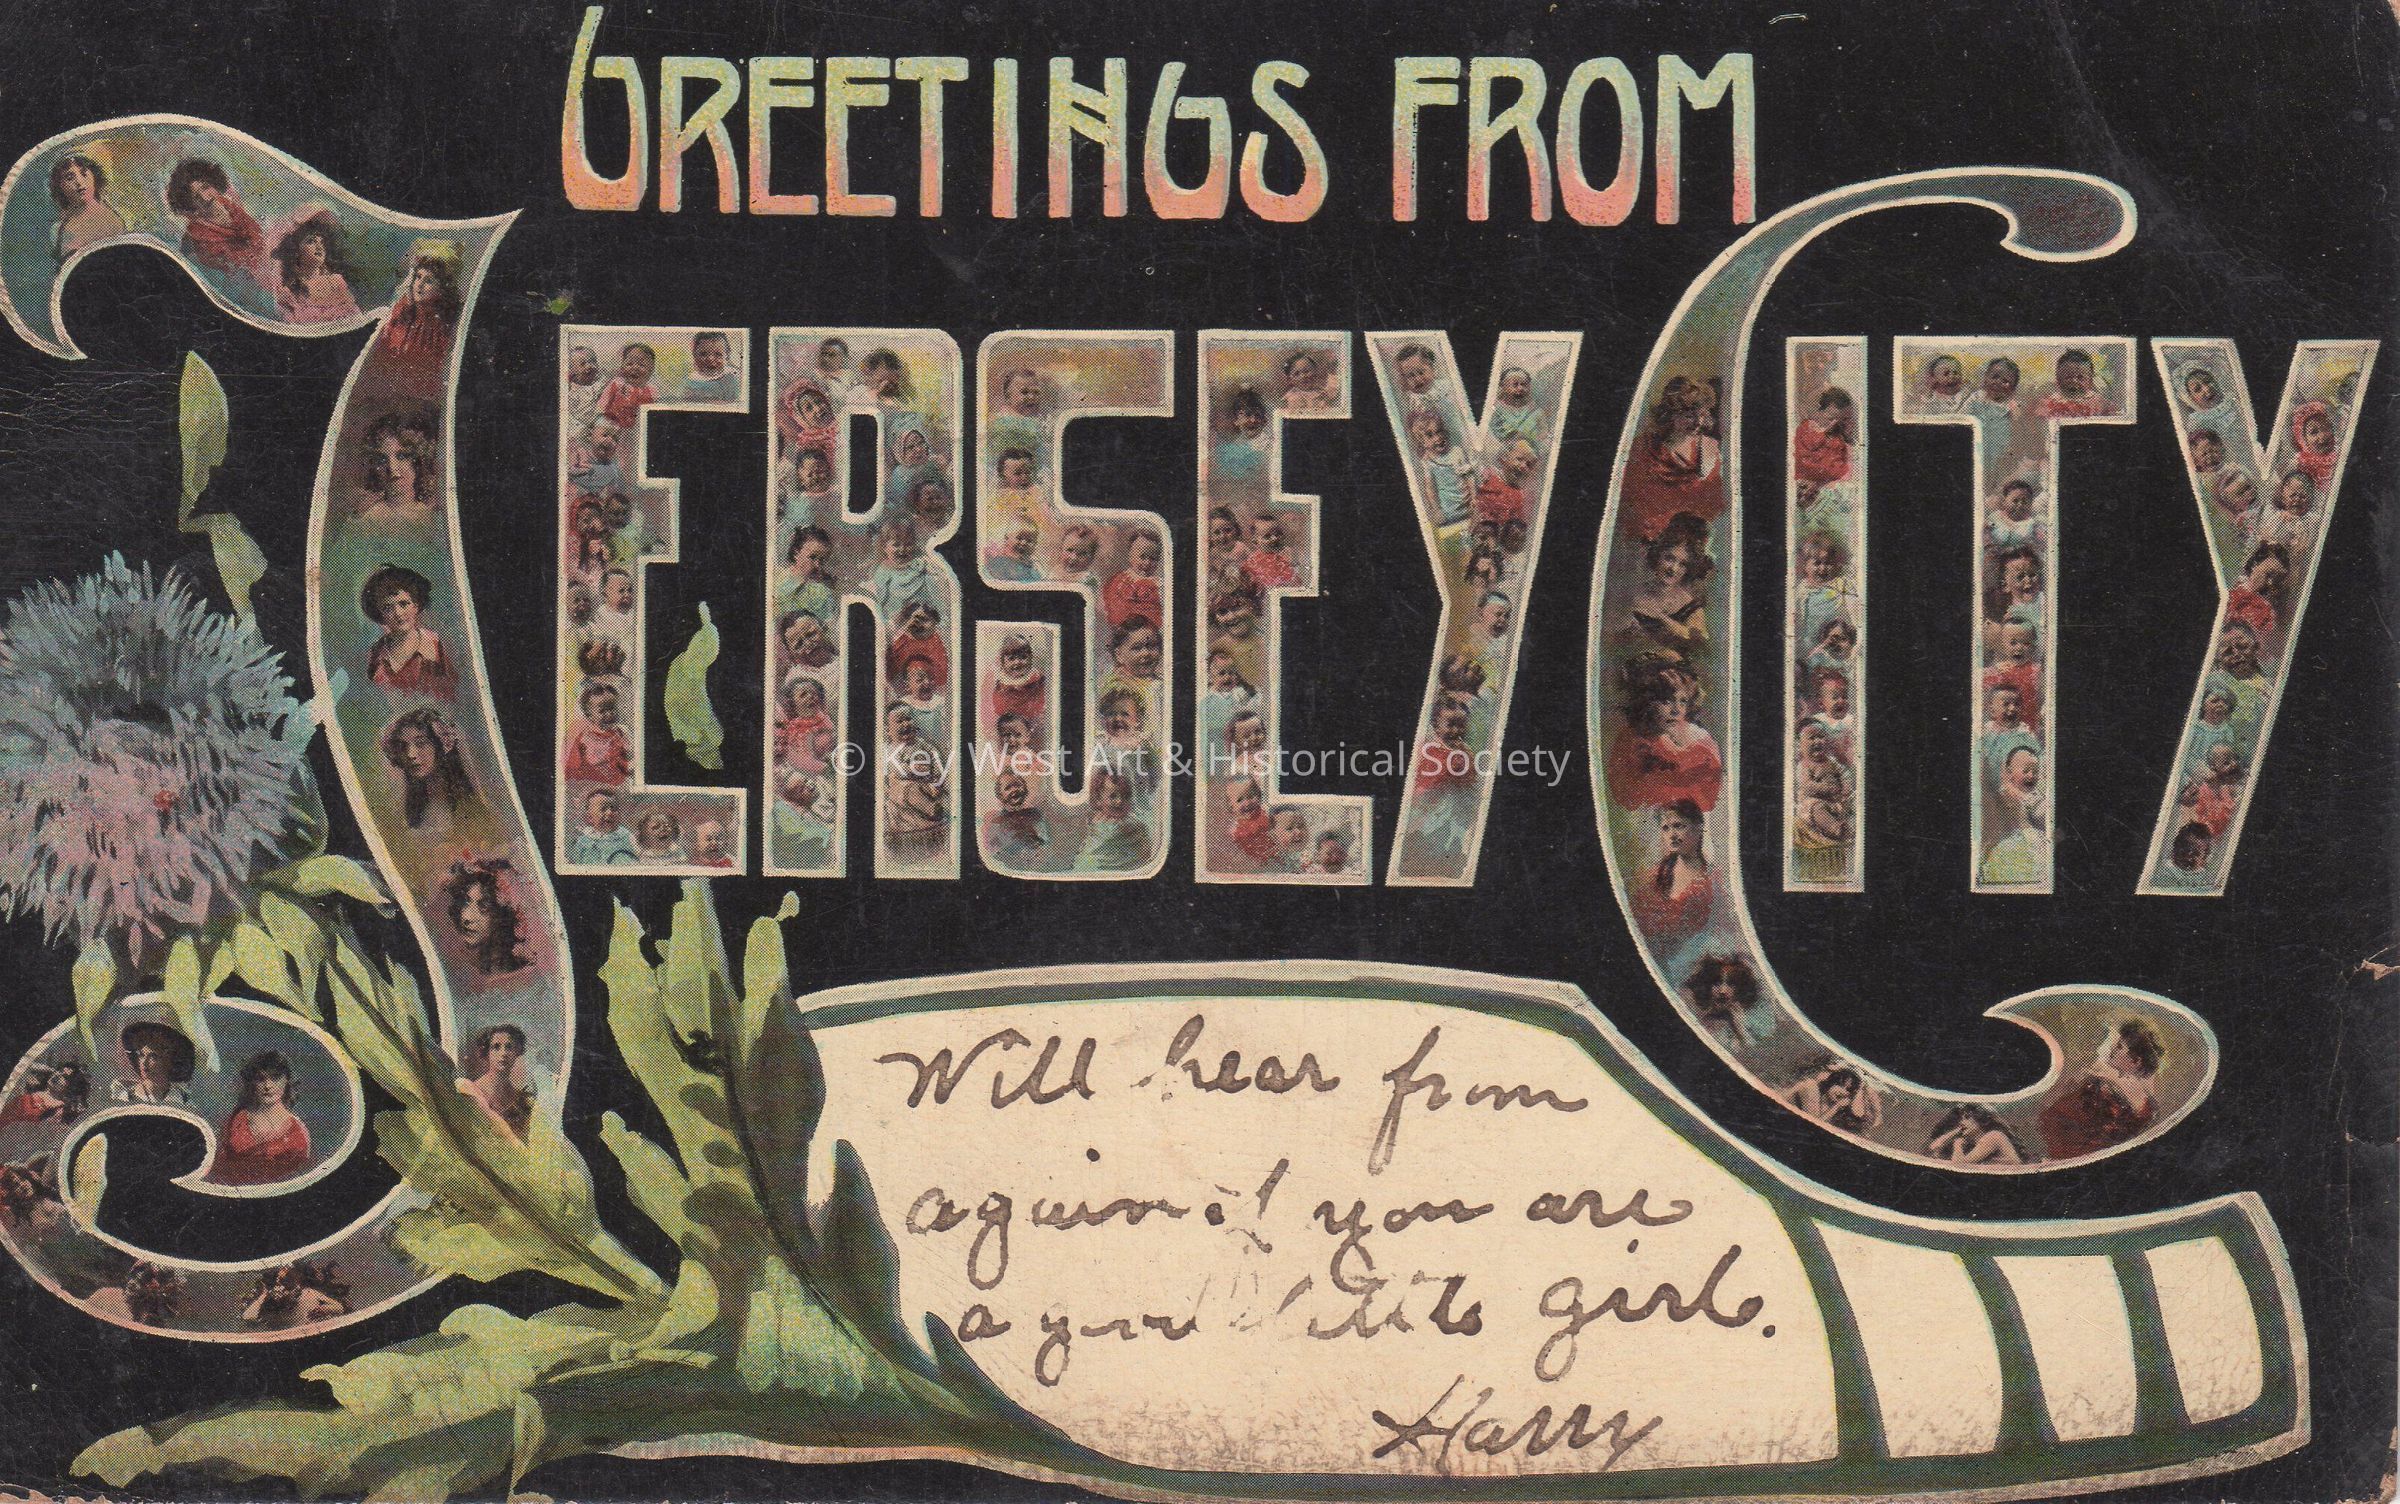 GREETINGS FROM
JERSEY CITY
© Key West Art & Historical Society
Will hear from
again if you are
a good little girl.
Harry